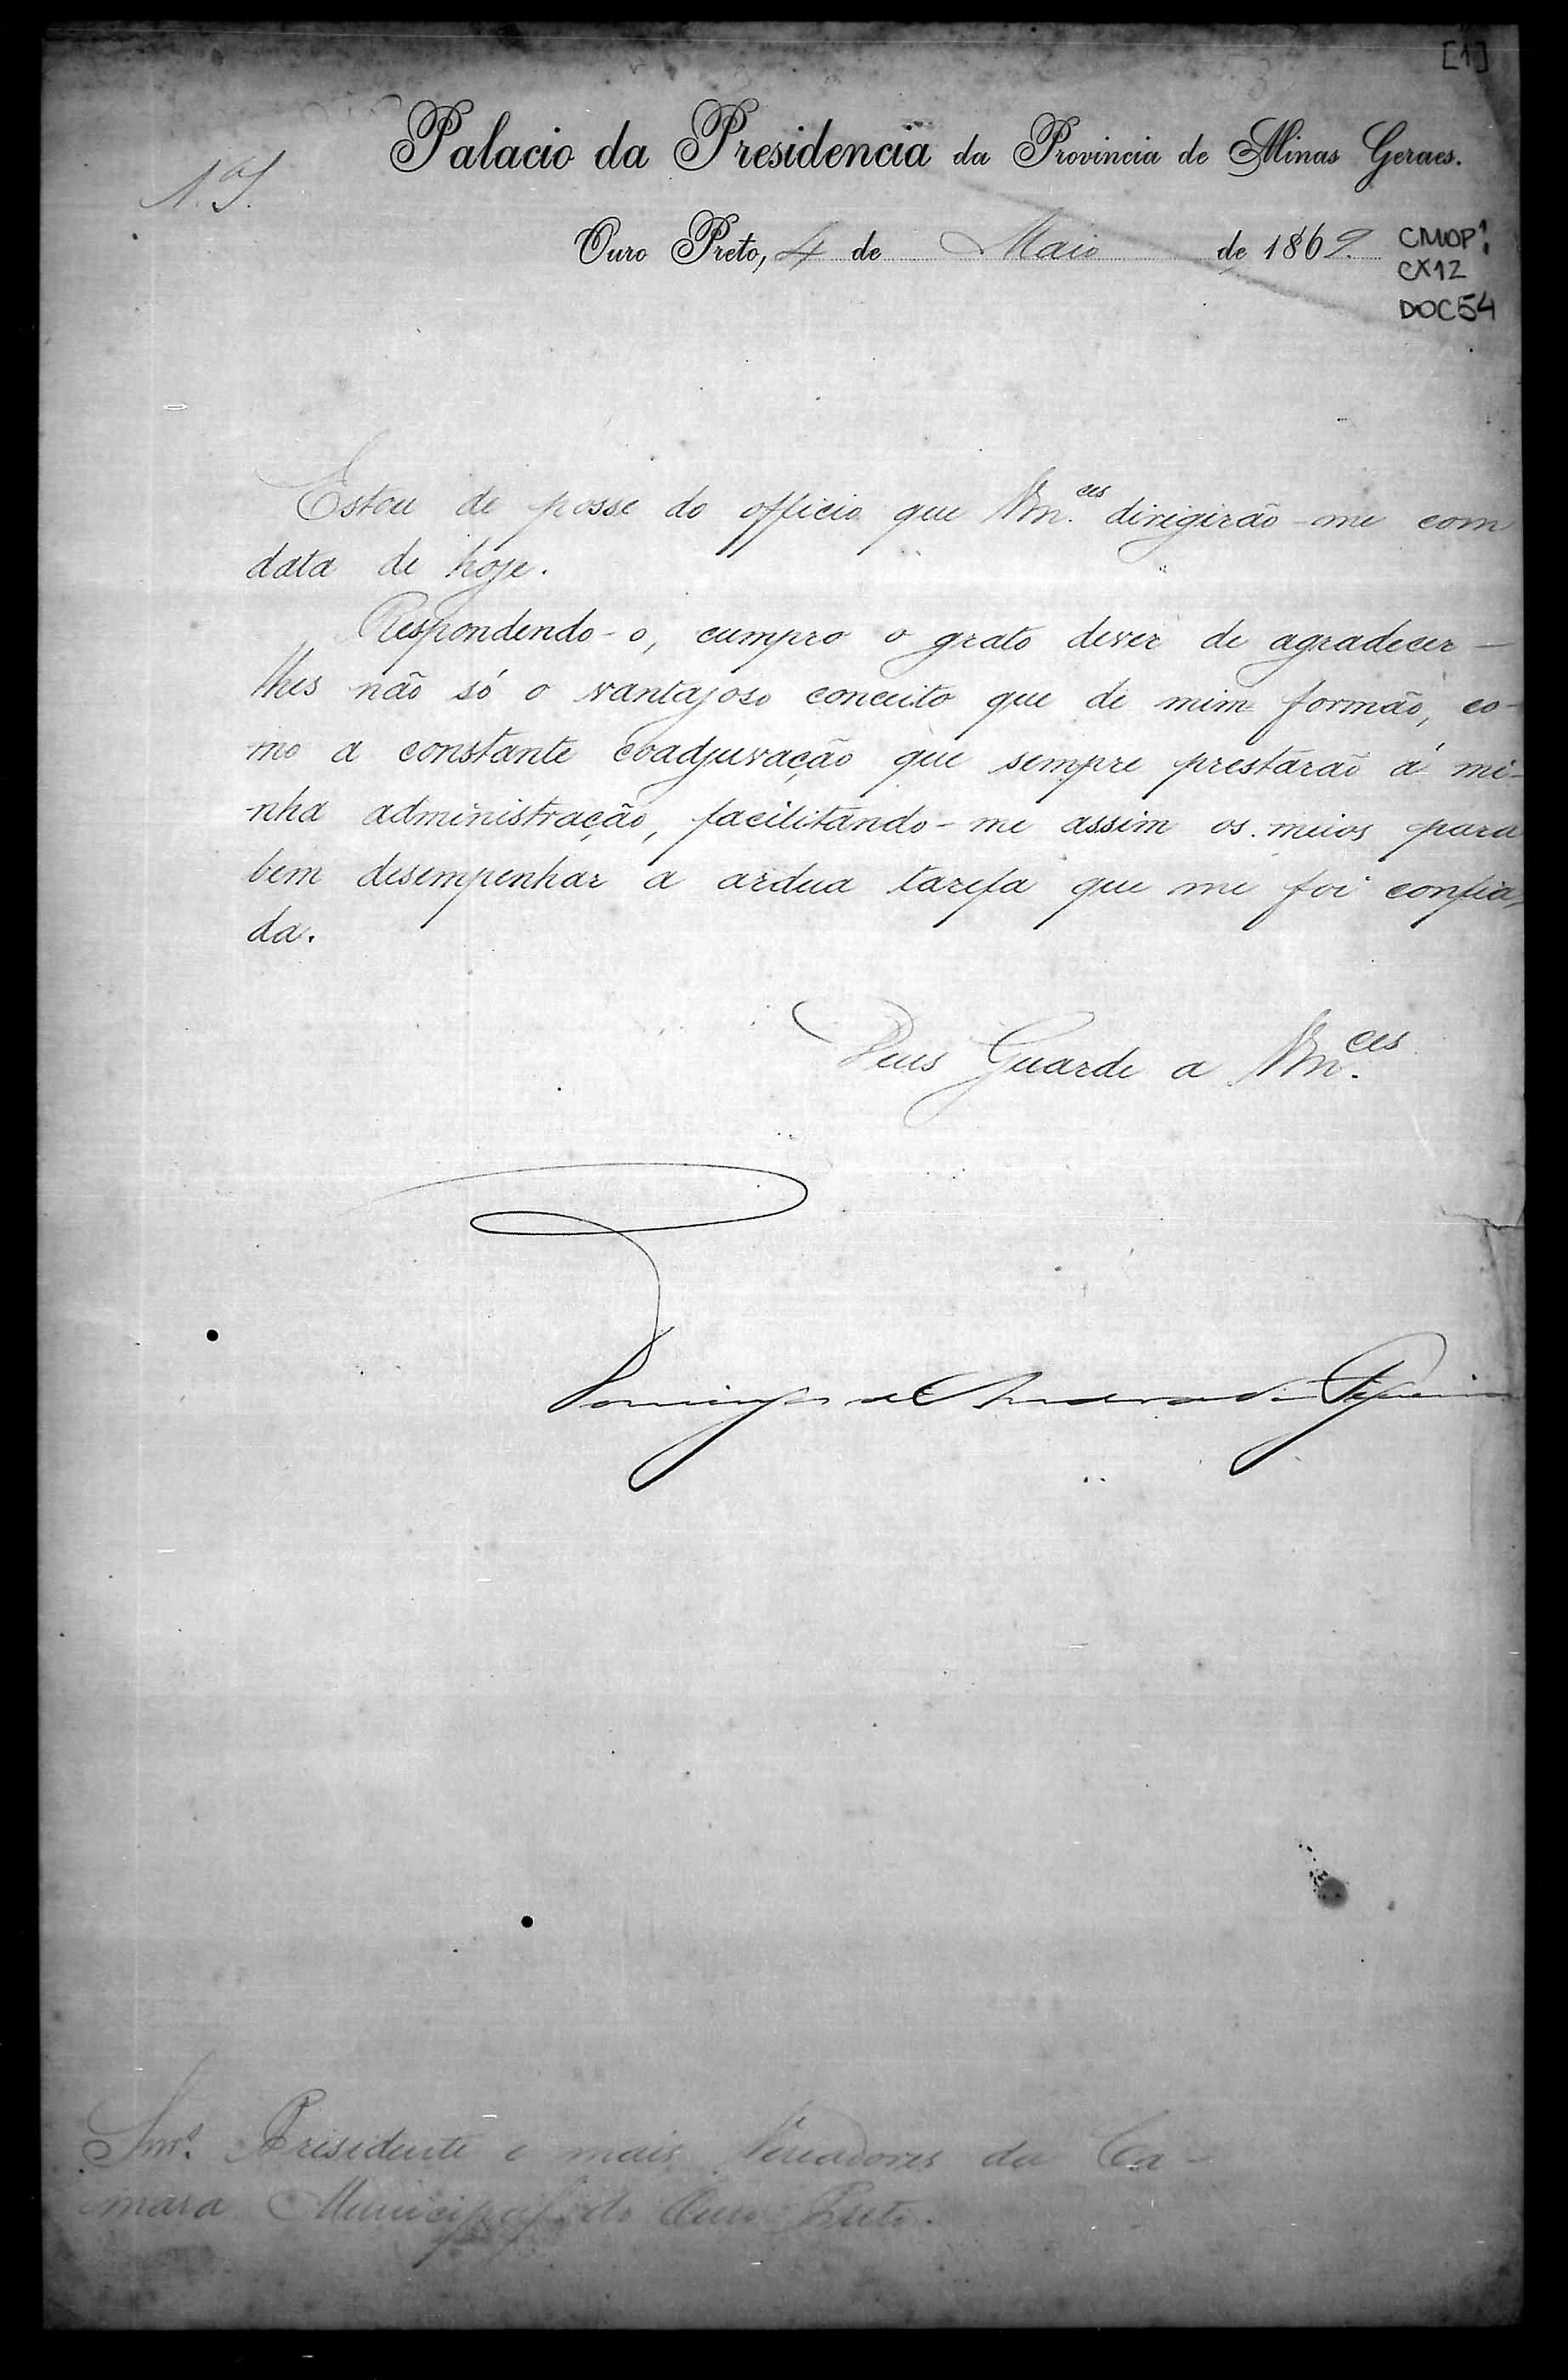 [1]
Palacio da Presidencia da Provincia de Minas Geraes.
Ouro Preto, 4 de Maio de 1869.
CMOP
CX12
DOC54
Estou de posse do officio que Vm.ces dirigirão-me com
data de hoje.
Respondendo-o, cumpro o grato dever de agradecer-
lhes não só o vantajoso conceito que de mim formão, co-
mo a constante coadjuvação que sempre prestarão á mi-
nha administração, facilitando-me assim os meios para
bem desempenhar a ardua tarefa que me foi confia-
da.
Deus Guarde a Vm.ces
Domingos de Andrade Figueira
Snrs. Presidente e mais Vereadores da Ca-
mara Municipal do Ouro Preto.